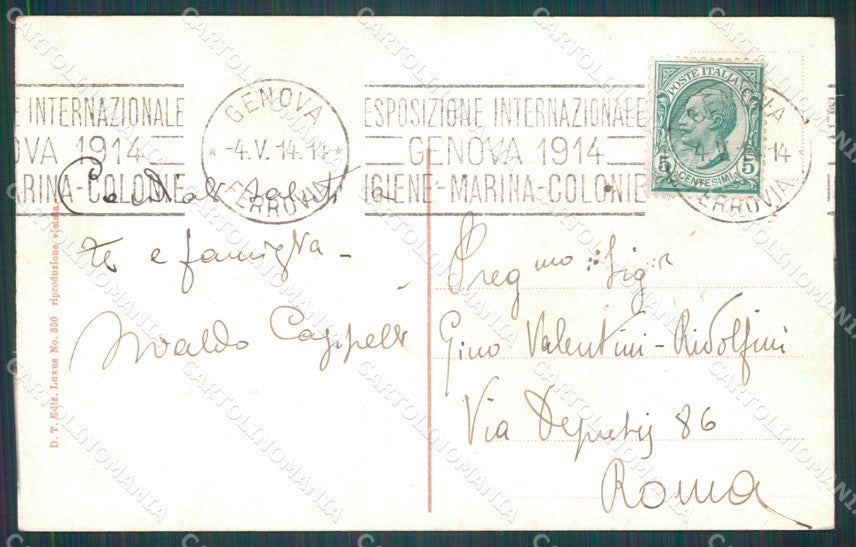 E INTERNAZIONALE
OVA 1914
ARINA-COLONIE
GENOVA
-4.V.14.14
FERROVIA
ESPOSIZIONE INTERNAZIONALE
GENOVA 1914
IGIENE-MARINA-COLONIE
POSTE ITALIANE
5 5
CENTESIMI
14
FERROVIA
Cordiali saluti a
te e famiglia -
Cappelli
D. T. Ediz. Luxus No. 350 riproduzione vietata
Preg mo Sig r
Gino Valentini-Ridolfini
Via Depretis 86
Roma
CARTOLINOMANIA